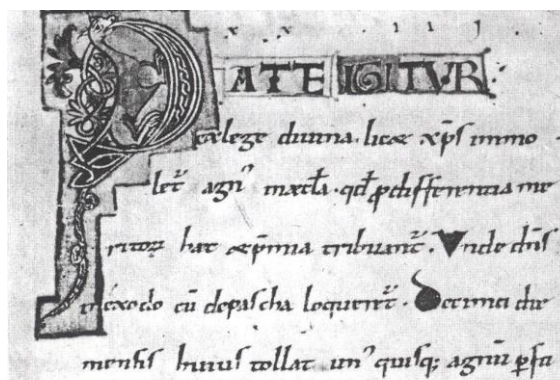 x x ı ı ı J
PATE IGITVR
ex lege diuina. licet xp̄s immo
let̄ agn᾿ in aeccl̄a. qđ ꝓ differentia me
ritoꝝ haec et p̄mia tribuant̄. Vnde dn̄s
in exodo cū de pascha loqueret̄. Decima die
mensis huius tollat un᾿ quisq; agnū ꝑ fa